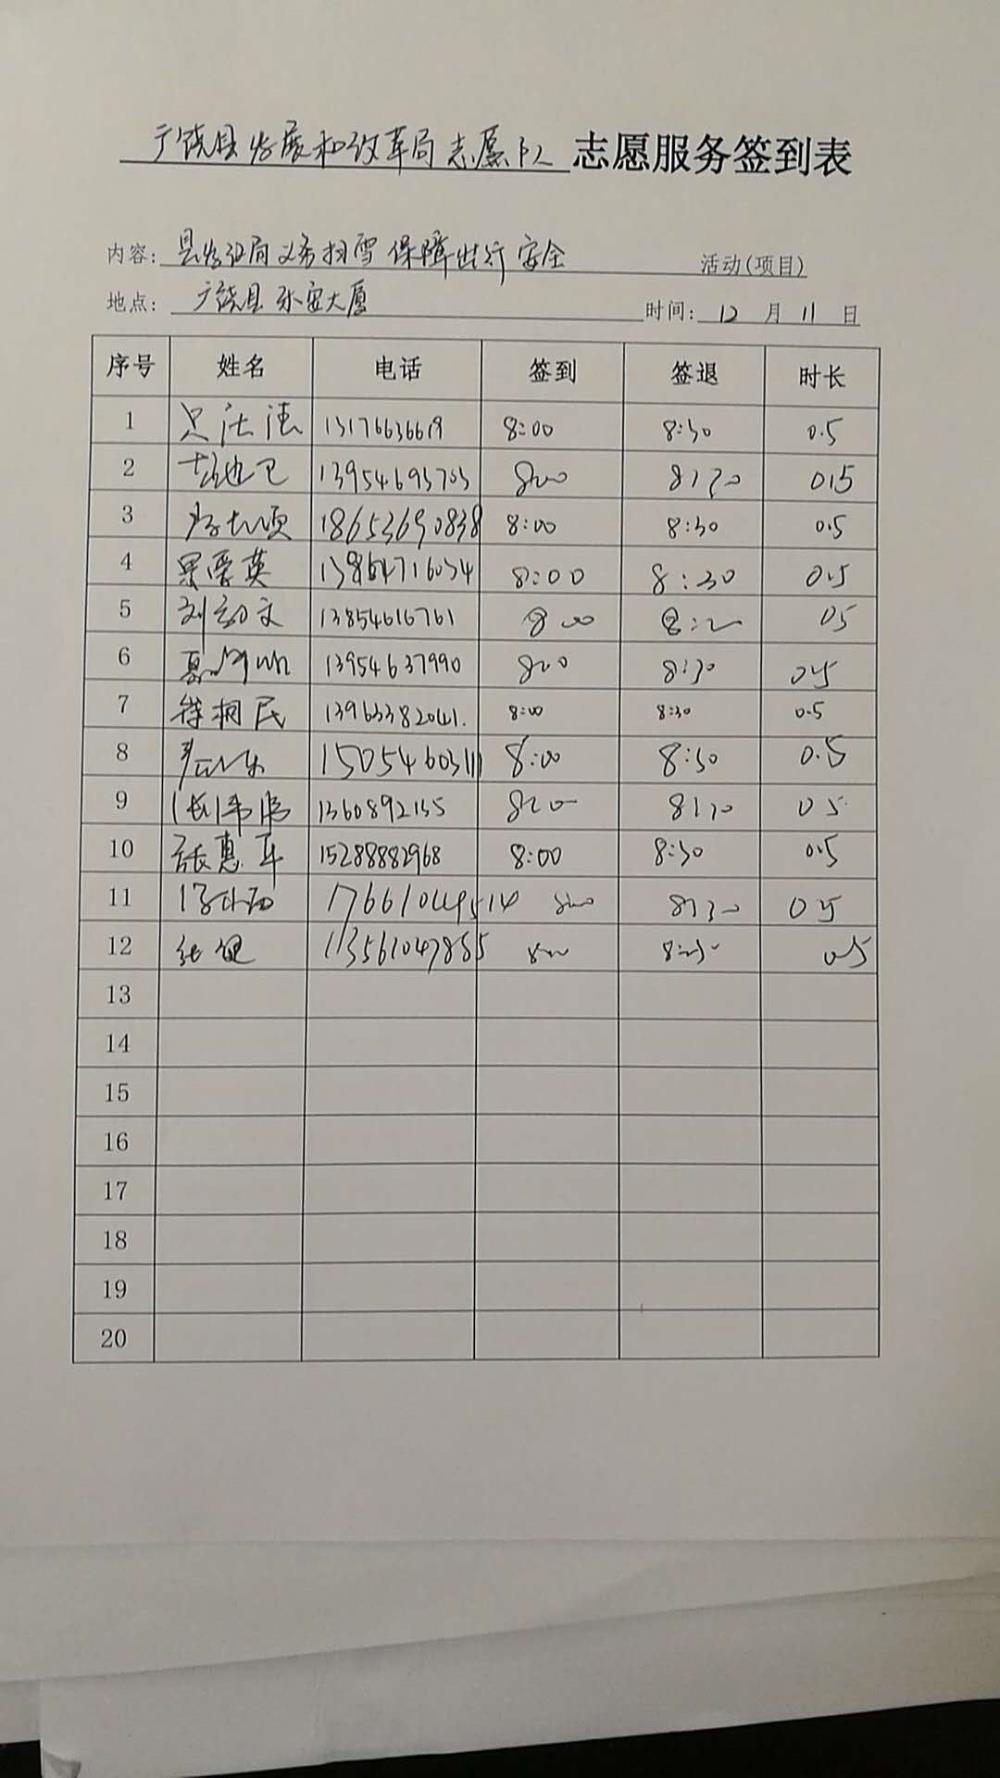 广饶县发展和改革局志愿队 志愿服务签到表
内容: 县发改局义务扫雪 保障出行安全 活动(项目)
地点: 广饶县 大厦 时间: 12 月 11 日
序号 姓名 电话 签到 签退 时长
1 13176636619 8:00 8:30 0.5
2 13954693703 8:00 8:30 0.5
3 18653690838 8:00 8:30 0.5
4 爱英 13864716034 8:00 8:30 0.5
5 刘 文 13854616761 8:00 8:30 0.5
6 13954637990 8:00 8:30 0.5
7 徐桐民 13963382041. 8:00 8:30 0.5
8 15054603111 8:00 8:30 0.5
9 1360892135 8:00 8:30 0.5
10 张惠军 15288882968 8:00 8:30 0.5
11 17661049514 8:00 8:30 0.5
12 13561047885 8:00 8:30 0.5
13
14
15
16
17
18
19
20